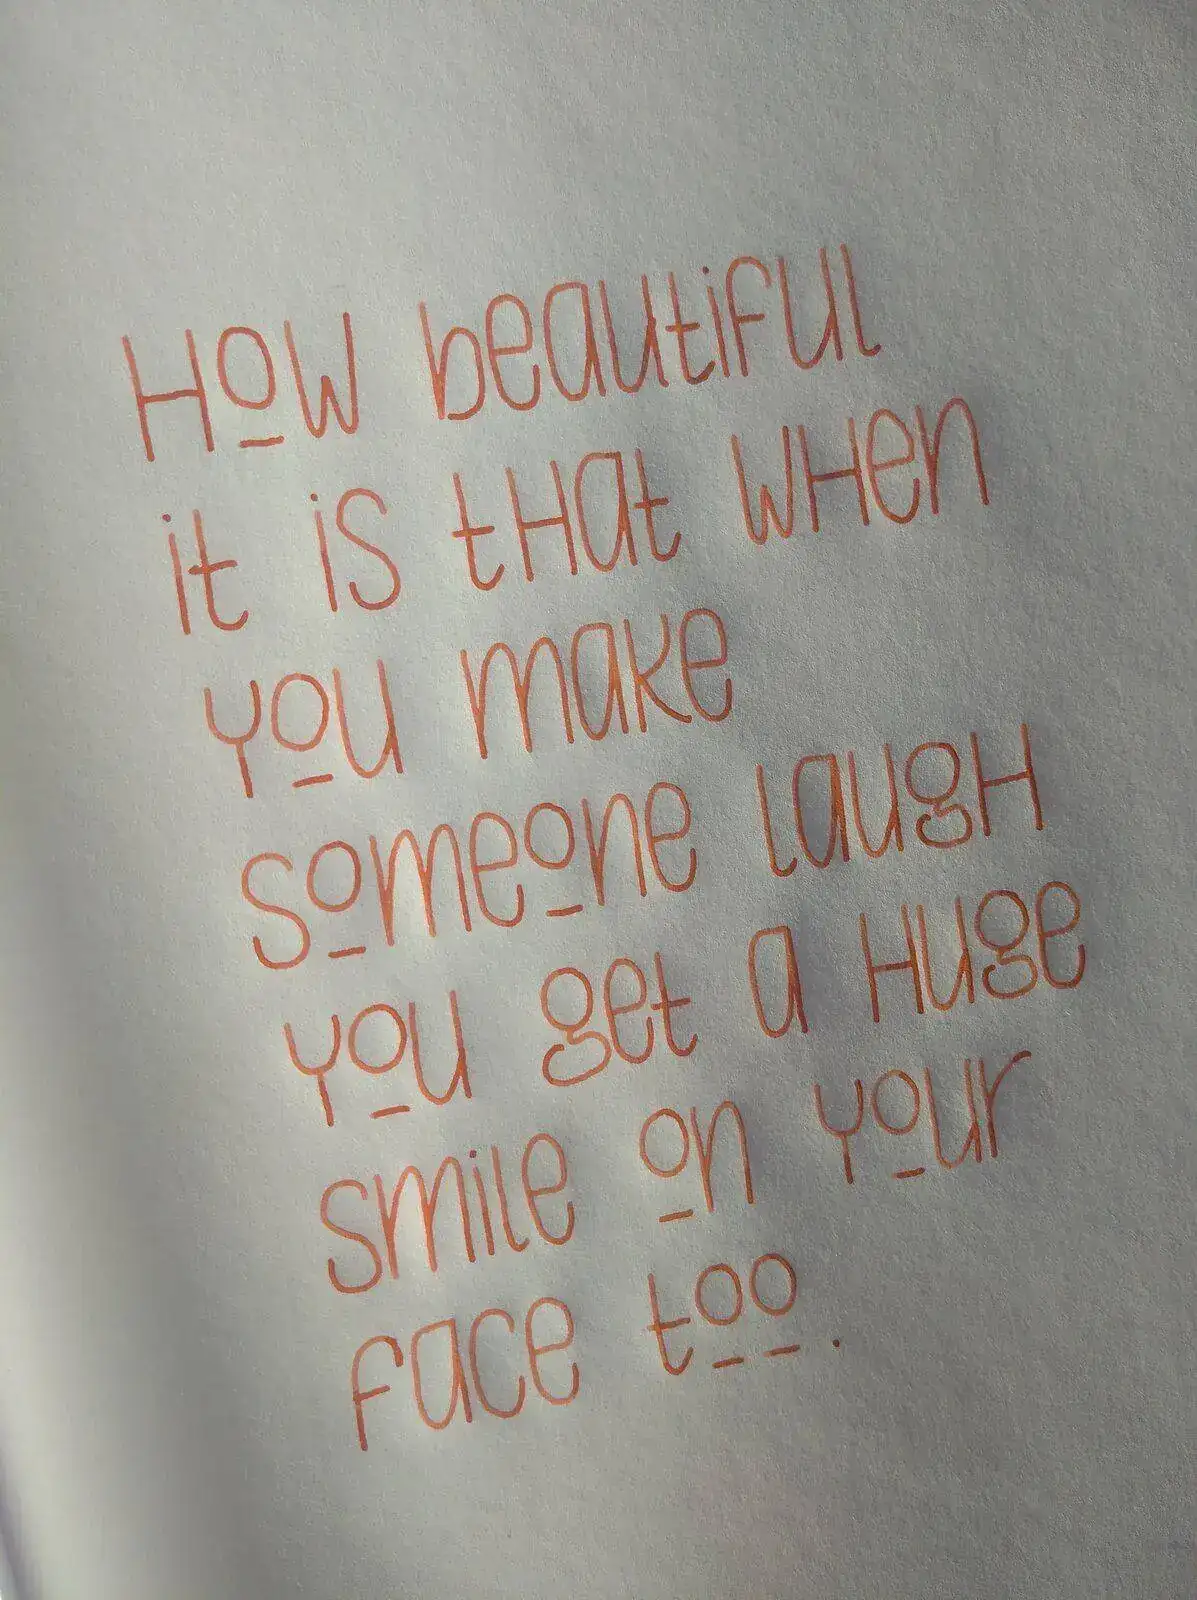 How beautiful
it is that when
you make
someone laugh
you get a huge
smile on your
face too.